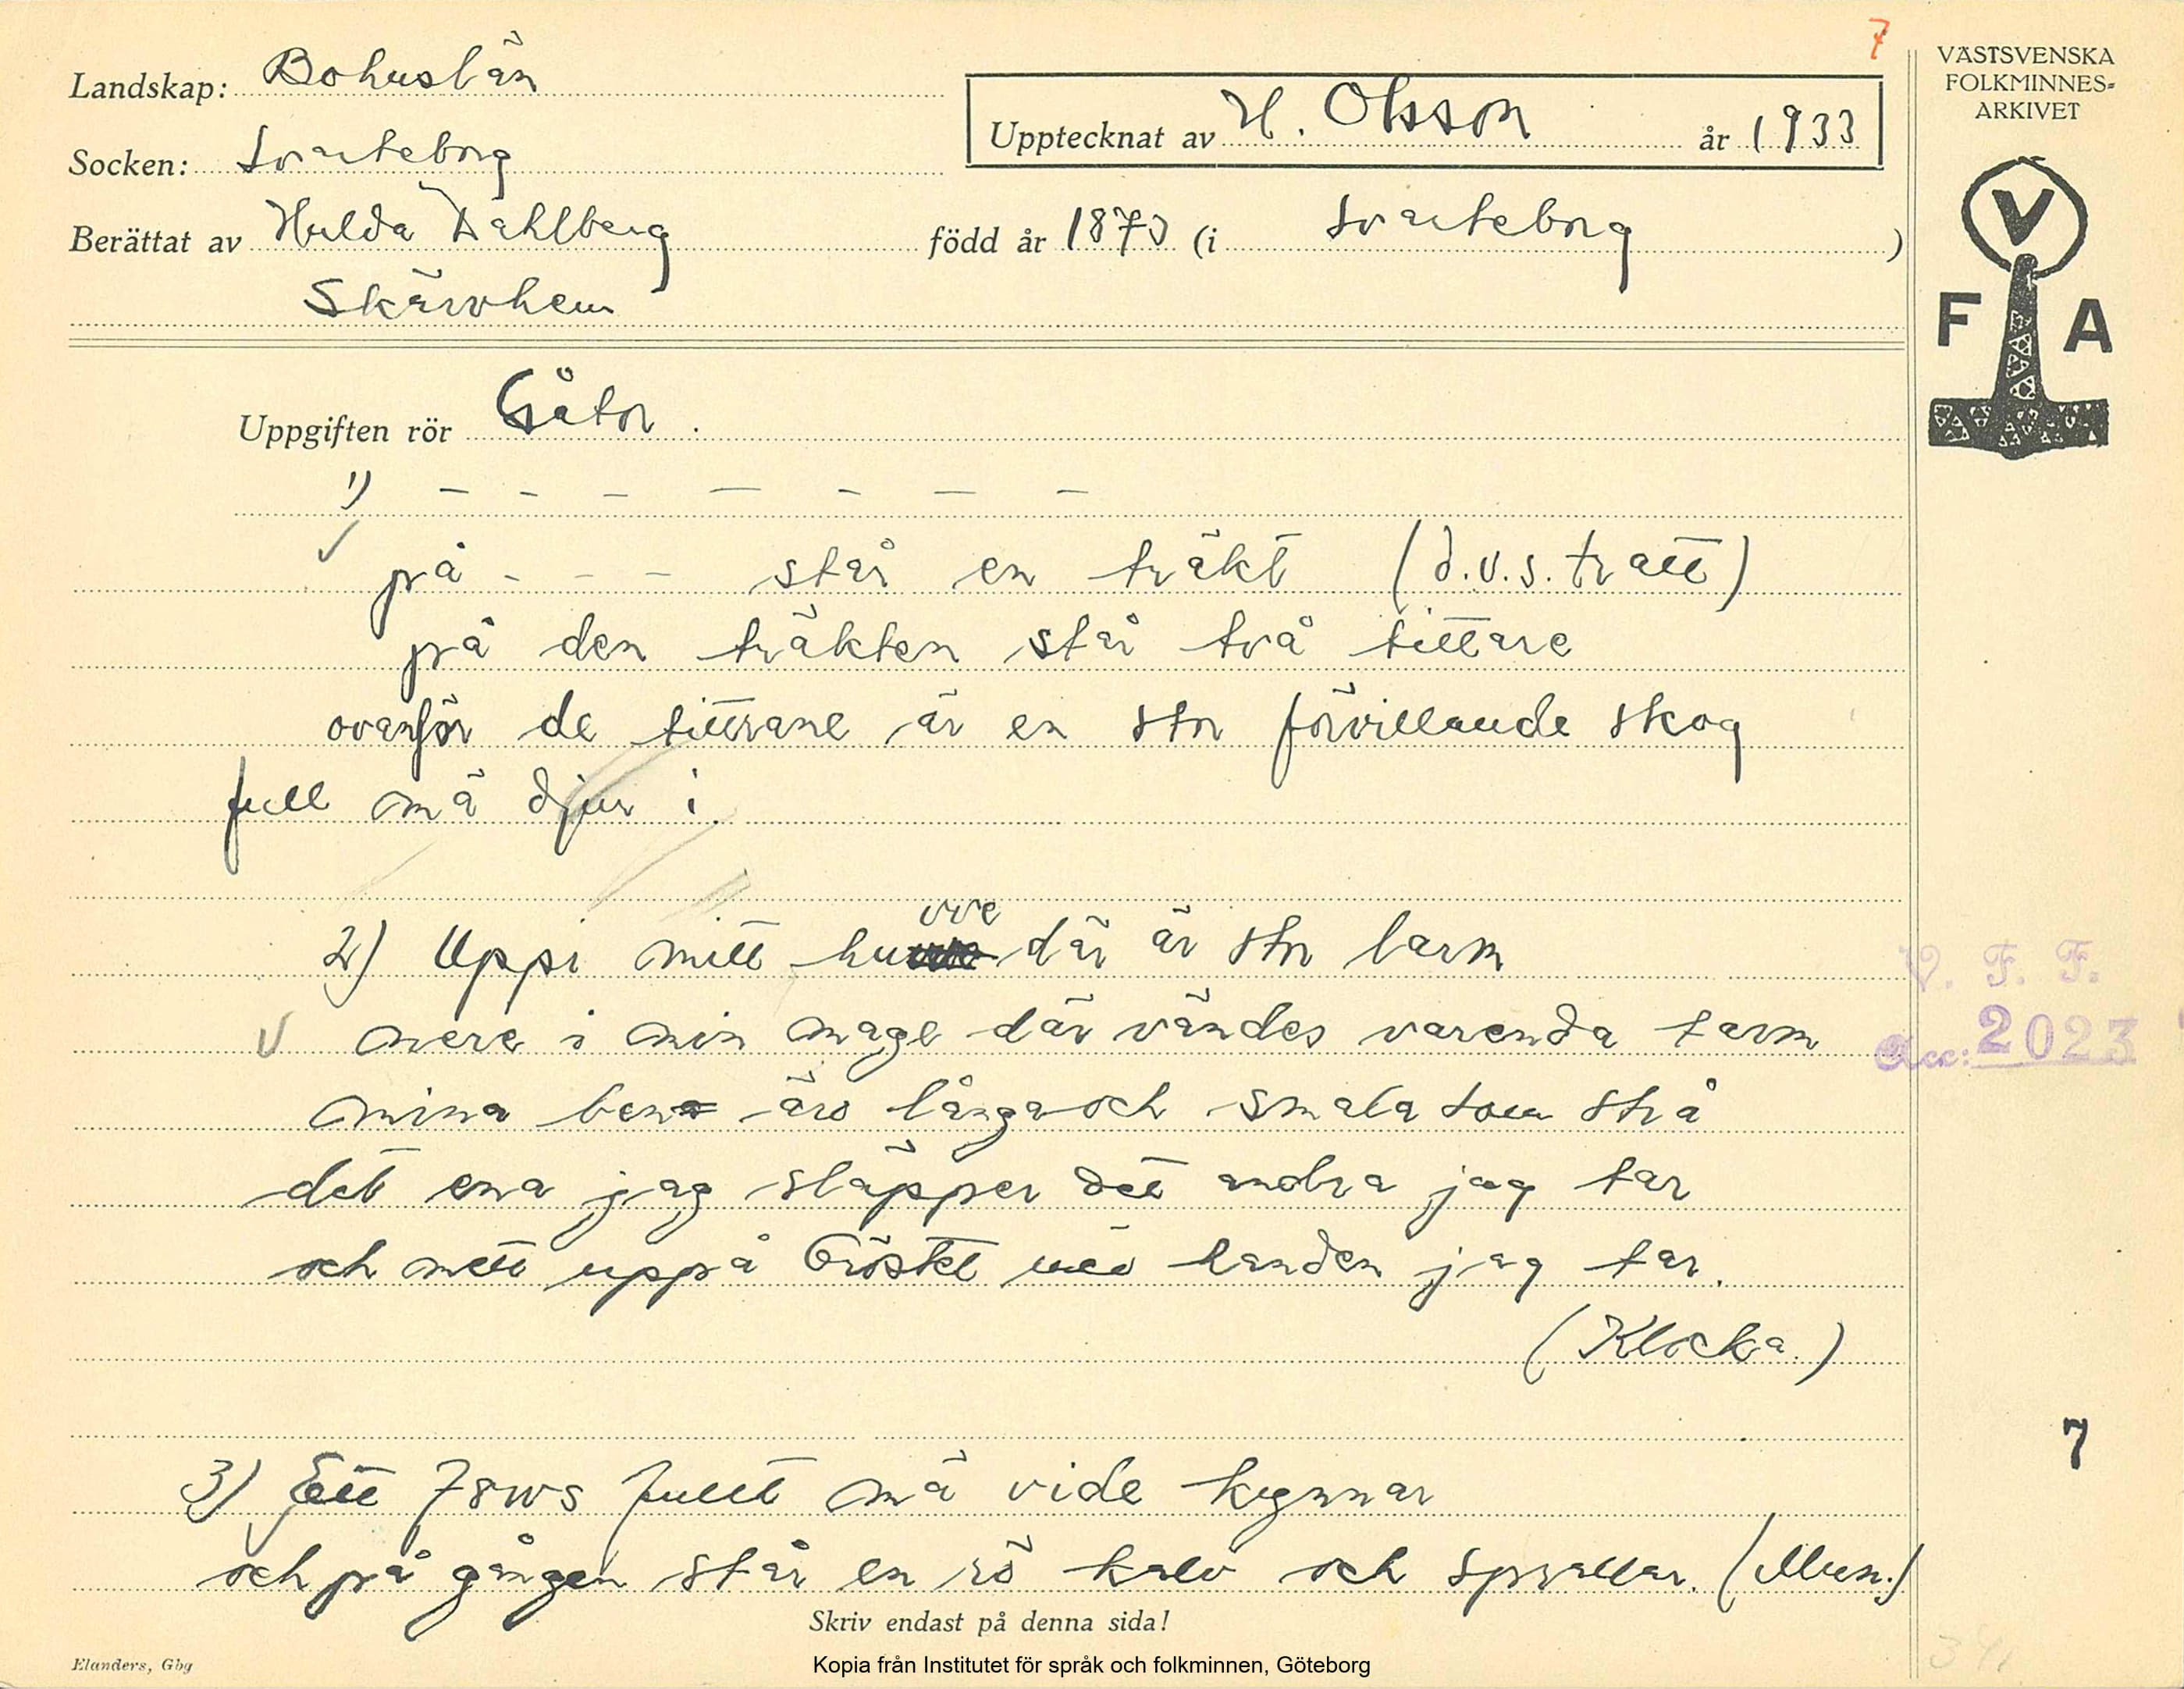 7
VÄSTSVENSKA
FOLKMINNES-
ARKIVET
Landskap: Bohuslän
Upptecknat av H. Olsson år 1933
Socken: Svarteborg
Berättat av Hulda Dahlberg född år 1873 (i Svarteborg)
Skärvhem
V
F A
Uppgiften rör Gåtor.
1) – – – – – – –
på - - - står en träkt (d.v.s. tratt)
på den träkten står två tittare
ovanför de tittrane är en stor förvillande skog
full mä djur i.
2) Uppi mitt huvve där är stor larm
mere i min mage där vändes varenda tarm
mina ben äro långa och smala som strå
det ena jag släpper det andra jag tar
och mitt uppå bröstet med handen jag tar.
(Klocka.)
V. F. F.
Acc: 2023
7
3) Ett fullt mä vide kynnar
och på gången står en rö kalv och sprallar. (Mun.)
Skriv endast på denna sida!
Elanders, Gbg
Kopia från Institutet för språk och folkminnen, Göteborg